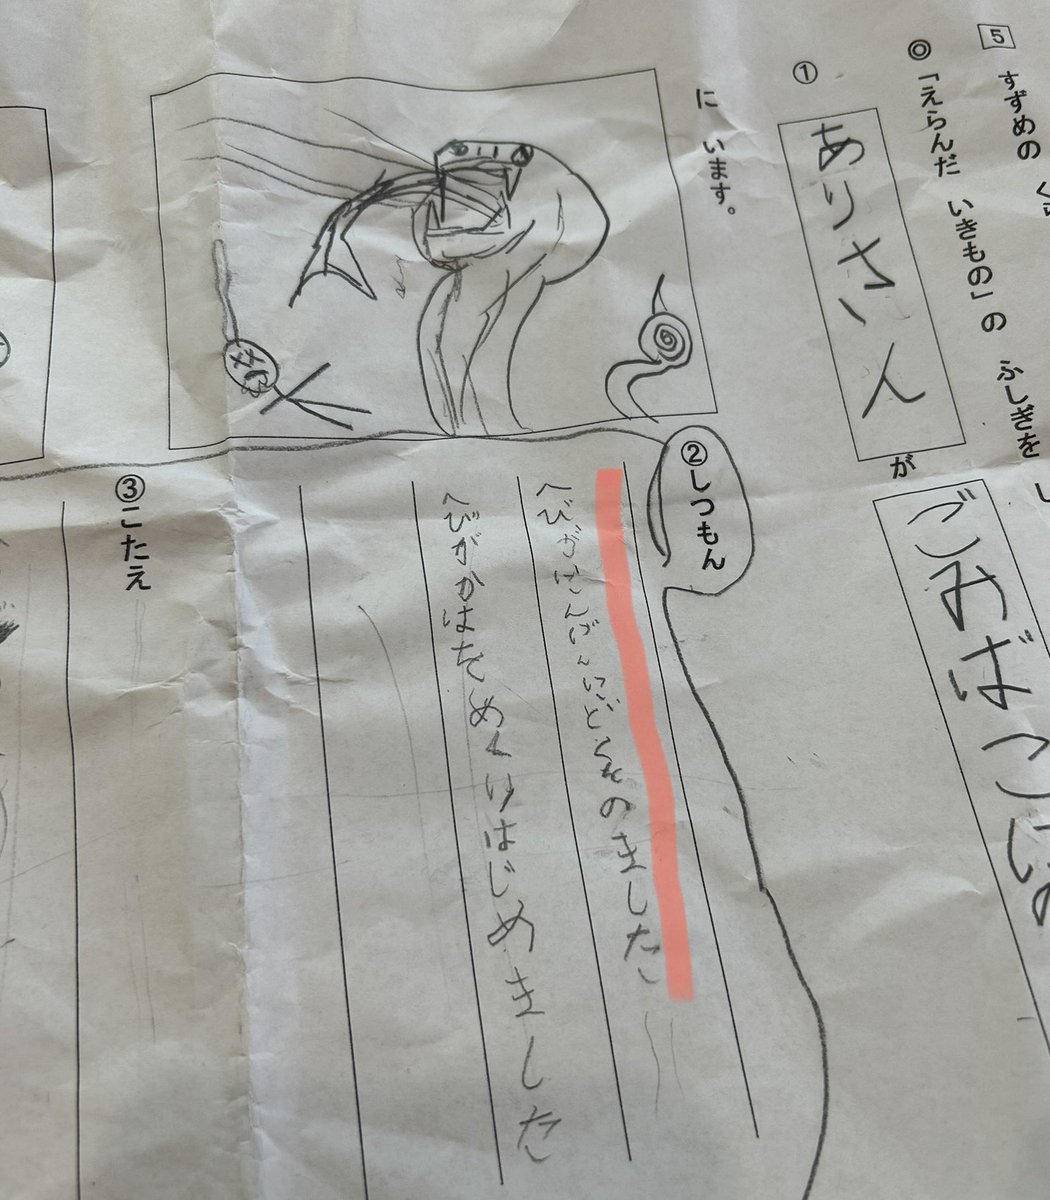 5 すずめの
◎「えらんだ いきもの」の ふしぎを
① ありさん が ごみばこ
に います。
②しつもん
へびがにんげんにどくをのました
へびがかはをめくりはじめました
③こたえ